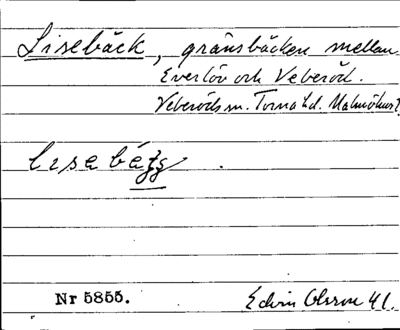 Lisebäck, gränsbäcken mellan
Everlöv och Veberöd.
Veberöds sn. Torna hd. Malmöhus l.
lisebäʒʒ.
Nr 5855. Edvin Olsson 41.